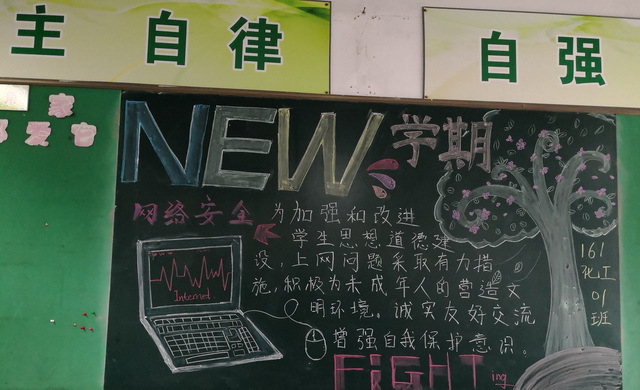 主 自律
自强
家
爱它
NEW 学期
网络安全
为加强和改进
学生思想道德建
设，上网问题采取有力措
施，积极为未成年人的营造文
明环境。诚实友好交流
增强自我保护意识。
Internet
FiGHTing
161
化工
01
班